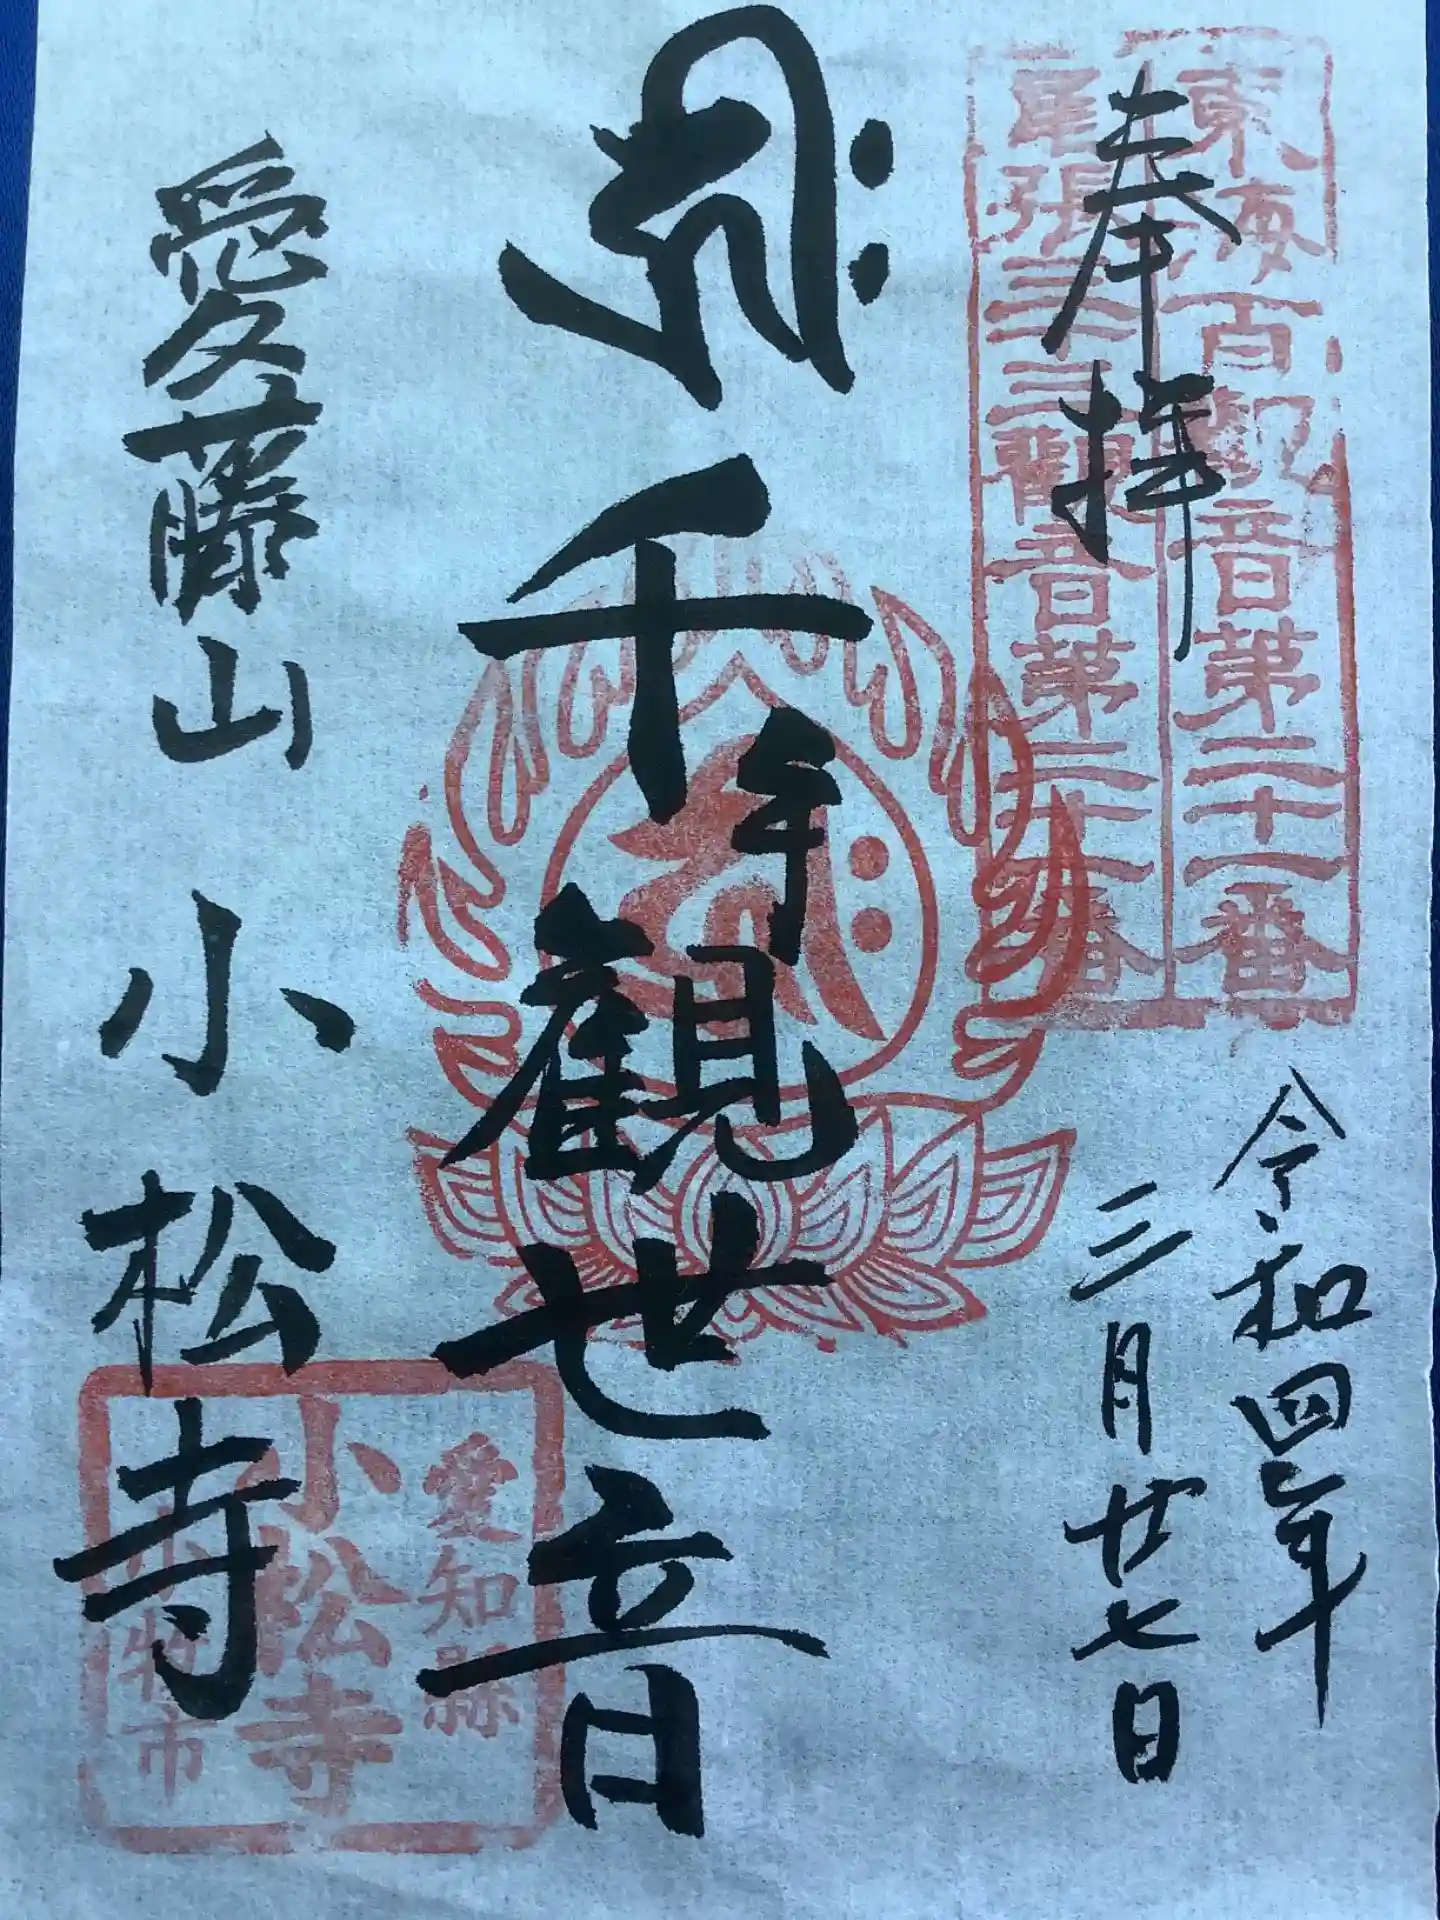 奉拝
東海百観音第二十一番
尾張三十三観音第二十一番
令和四年
三月廿七日
千手観世音
愛藤山 小松寺
愛知縣
小松寺
小牧市